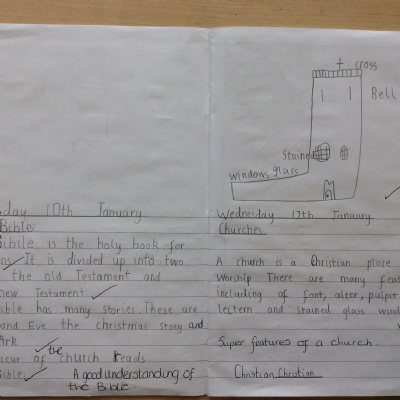 day 10th January
Bible
Bible is the holy book for
ns. It is divided up into two
the old Testament and
new Testament
ible has many stories. These are
and Eve the christmas story and
Ark
icar of the church reads
Bible.
A good understanding of
the Bible.
cross
Bell
Stained
glass
windows
Wednesday 17th January
Churches
A church is a Christian place
Worship There are many feat
including of font, alter, pulpit
lectern and stained glass wind
Super features of a church.
Christian Christian